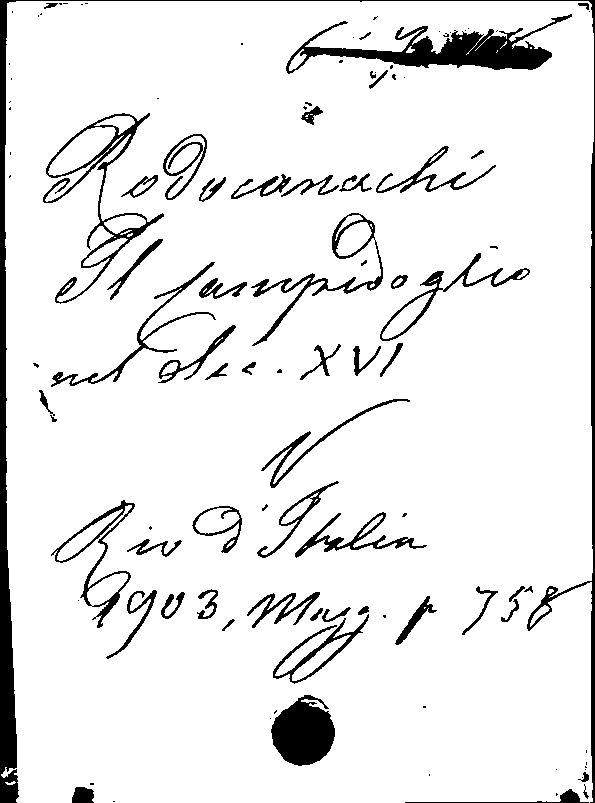 Rodocanachi
Il Campidoglio
nel Sec. XVI
V
Riv d'Italia
1903, Magg. p 758